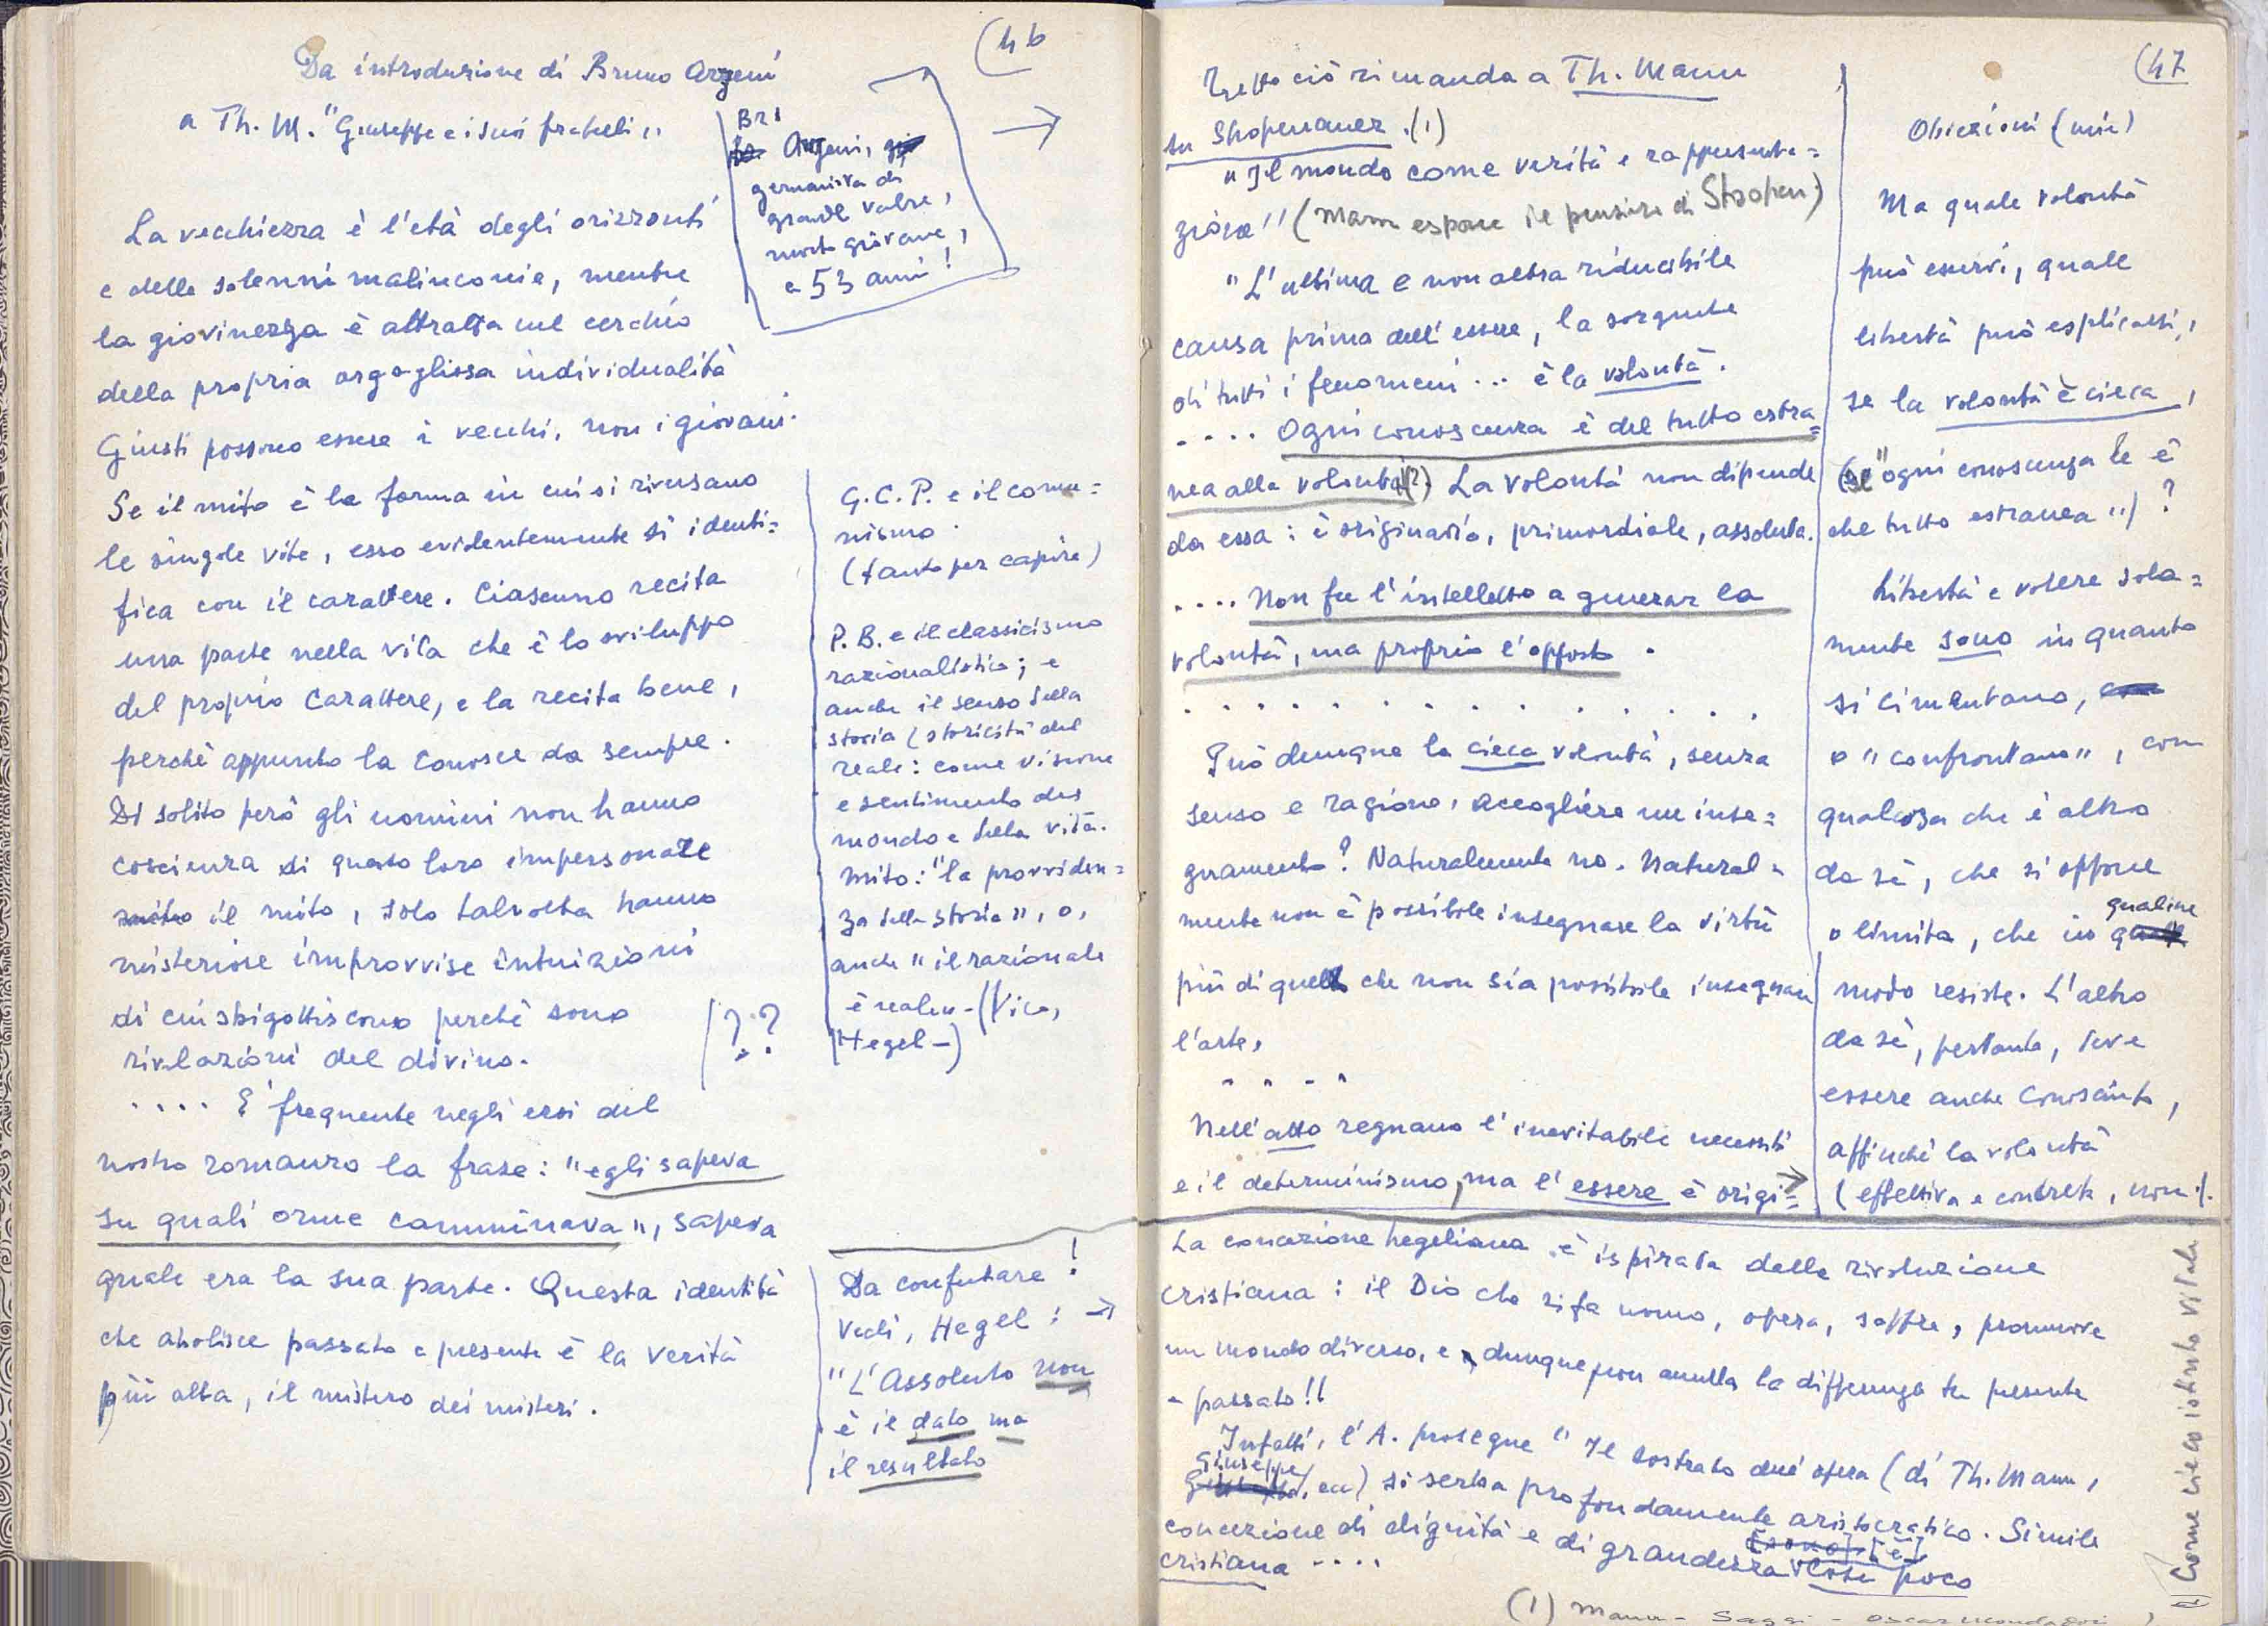 (46
Da introduzione di Bruno Arzeni
a Th. M. "Giuseppe e i suoi fratelli"
Br.
Arzeni,
germanista di
grande valore,
morto giovane,
a 53 anni!
La vecchiezza è l'età degli orizzonti
e delle solenni malinconie, mentre
la giovinezza è attratta nel cerchio
della propria orgogliosa individualità
Giusti possono essere i vecchi, non i giovani.
Se il mito è la forma in cui si riversano
le singole vite, esso evidentemente si identi=
fica con il carattere. Ciascuno recita
una parte nella vita che è lo sviluppo
del proprio carattere, e la recita bene,
perchè appunto la conosce da sempre.
Di solito però gli uomini non hanno
coscienza di questo loro impersonare
mito il mito, solo talvolta hanno
misteriose improvvise intuizioni
di cui sbigottiscono perchè sono
rivelazioni del divino.
(? ?
.... È frequente negli eroi del
nostro romanzo la frase: "egli sapeva
su quali orme camminava", sapeva
quale era la sua parte. Questa identità
che abolisce passato e presente è la verità
più alta, il mistero dei misteri.
G.C.P. e il comu=
nismo
(tanto per capire)
P.B. e il classicismo
razionalistico; e
anche il senso della
storia (storicità del
reale: come visione
e sentimento del
mondo e della vita.
mito: "la provviden=
za della storia", o,
anche "il razionale
è reale" - (Vico,
Hegel -)
Da confutare!
Vedi, Hegel: →
"L'Assoluto non
è il dato ma
il resultato
(47
Tutto ciò rimanda a Th. Mann
su Shopenauer. (1)
"Il mondo come verità e rappresenta=
zione" (Mann espone il pensiero di Shopen)
"L'ultima e non altra riducibile
causa prima dell'essere, la sorgente
di tutti i fenomeni ... è la volontà.
.... Ogni conoscenza è del tutto estra=
nea alla volontà (2). La volontà non dipende
da essa: è originaria, primordiale, assoluta.
.... Non fu l'intelletto a generar la
volontà, ma proprio l'opposto.
. . . . . . . . . . . . . .
Può dunque la cieca volontà, senza
senso e ragione, accogliere un inse=
gnamento? Naturalmente no. Natural=
mente non è possibile insegnare la virtù
più di quello che non sia possibile insegnare
l'arte.
. . . .
Nell'atto regnano l'inevitabile necessità
e il determinismo, ma l'essere è origi=
Obiezioni (mie)
Ma quale volontà
può esservi, quale
libertà può esplicarsi,
se la volontà è cieca,
(se "ogni conoscenza le è
del tutto estranea") ?
Libertà e volere sola=
mente sono in quanto
si cimentano,
o "confrontano", con
qualcosa che è altro
da sè, che si oppone
o limita, che in qualche
modo resiste. L'altro
da sè, pertanto, deve
essere anche conosciuto,
affinchè la volontà
(effettiva e concreta, non ./.
La concezione hegeliana è ispirata dalla rivoluzione
cristiana: il Dio che si fa uomo, opera, soffre, promuove
un mondo diverso, e dunque non annulla la differenza tra presente
e passato!!
Infatti, l'A. prosegue "Il sostrato dell'opera (di Th. Mann,
Giuseppe, ecc) si serba profondamente aristocratico. Simile
concezione di dignità e di grandezza è cosa poco
cristiana ....
(1) Mann - Saggi - Oscar Mondadori
(2) Come cieco istinto vitale